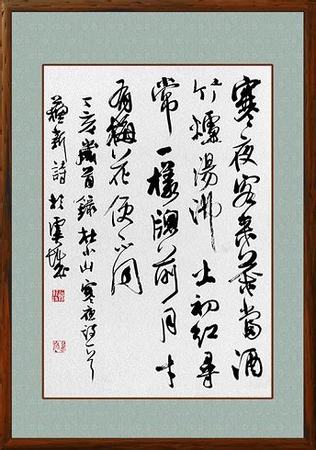 寒夜客来茶當酒
竹爐湯沸火初紅尋
常一樣窗前月才
有梅花便不同
丁亥歲首錄杜小山寒夜詩一首
新詩於